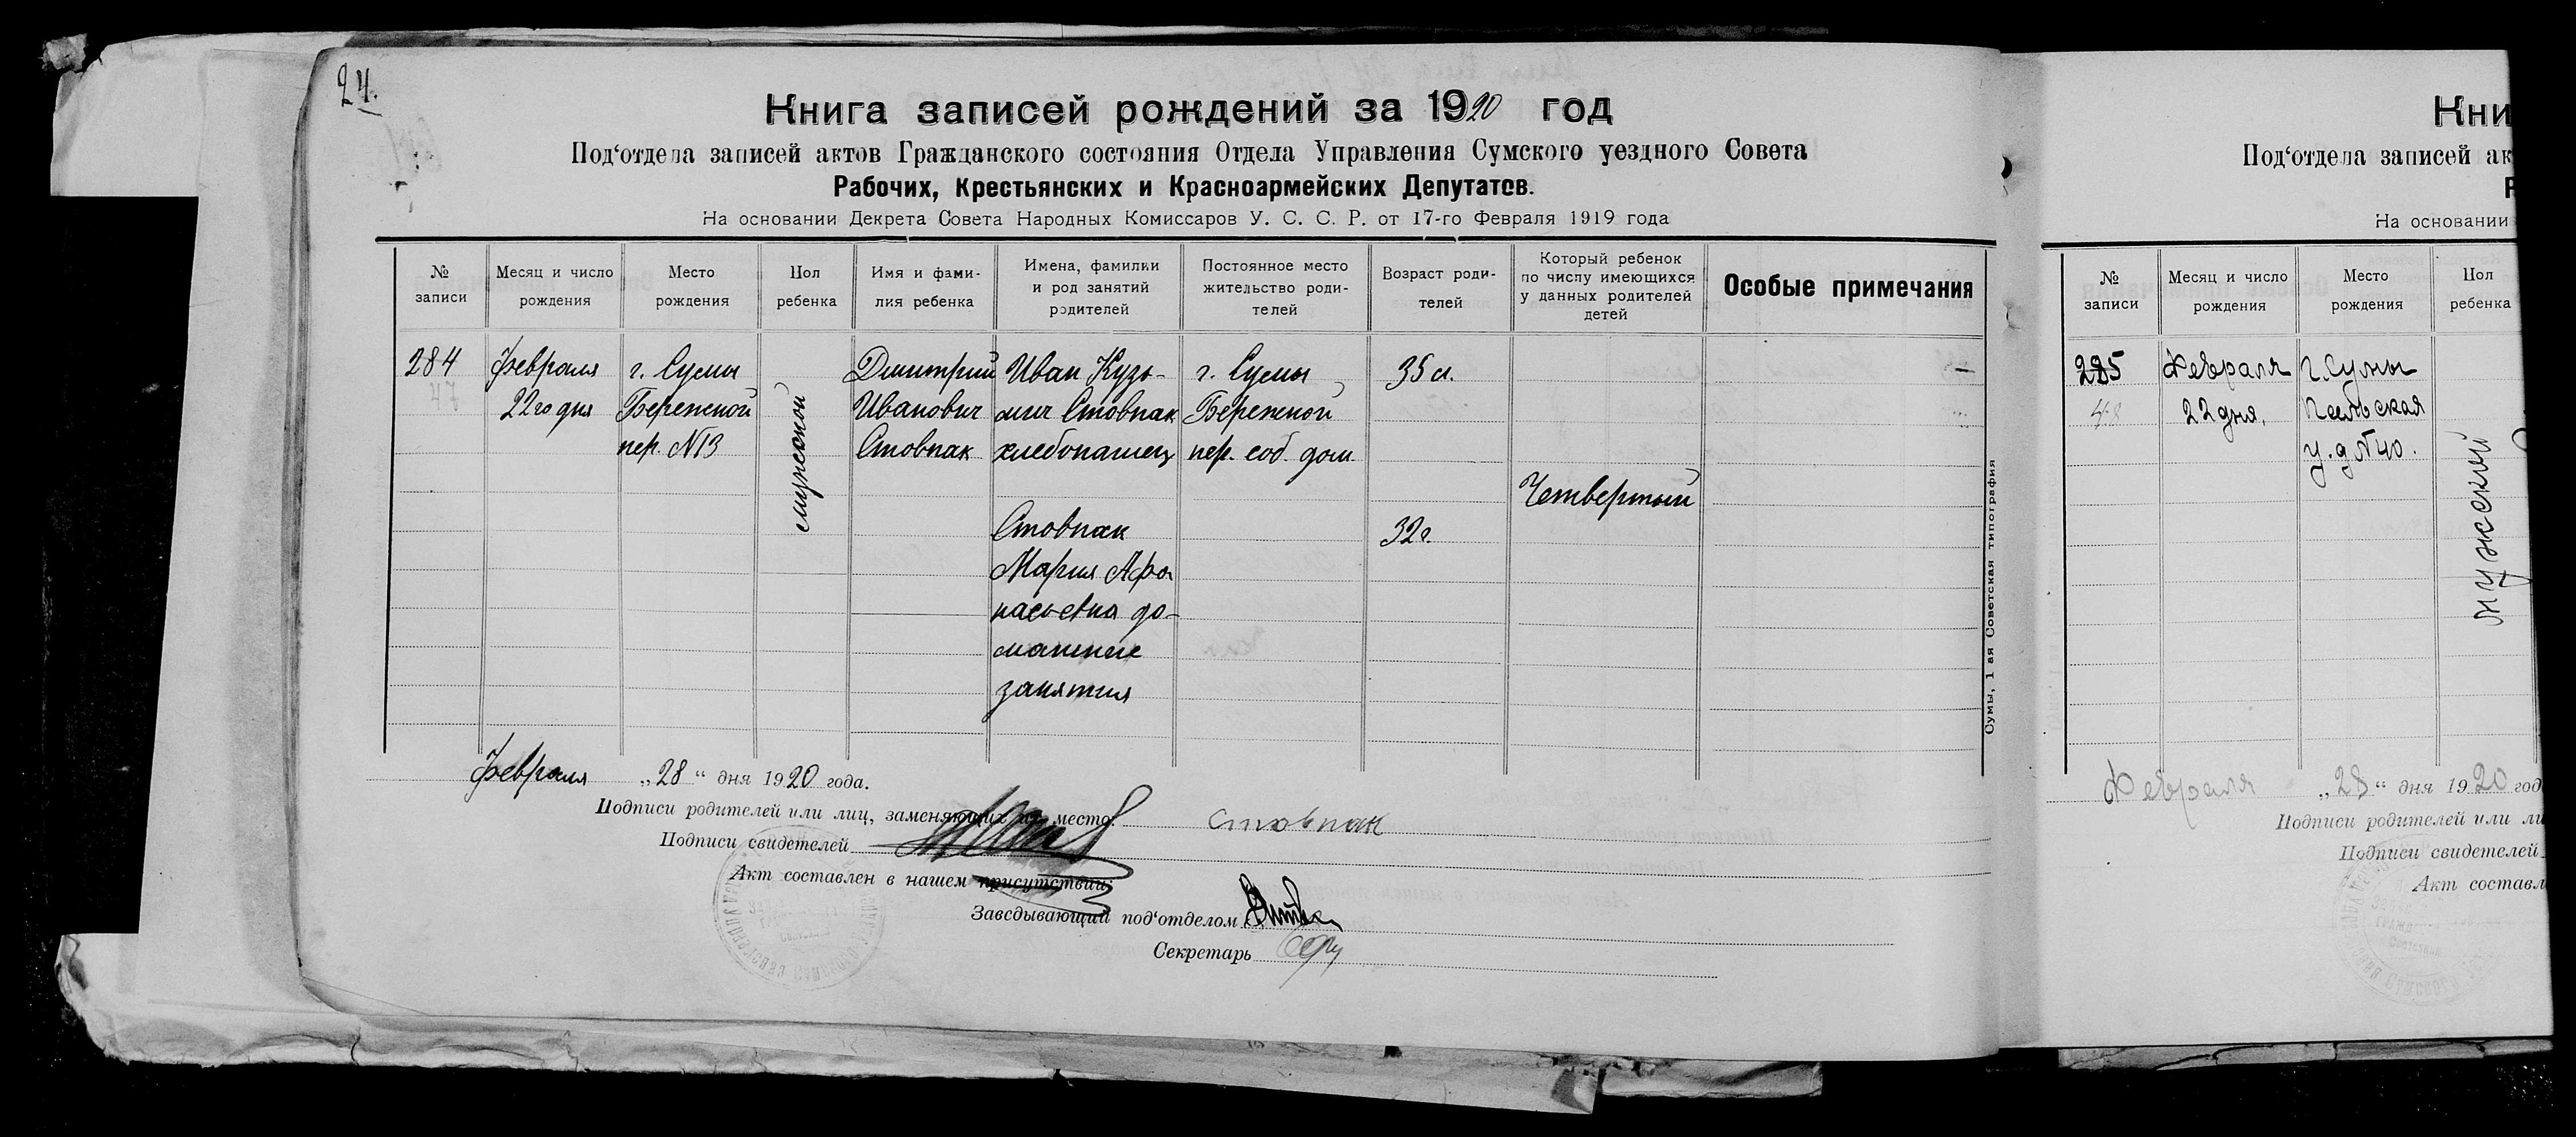 24.
Книга записей рождений за 1920 год
Под‘отдела записей актов Гражданского состояния Отдела Управления Сумского уездного Совета
Рабочих, Крестьянских и Красноармейских Депутатов.
На основании Декрета Совета Народных Комиссаров У. С. С. Р. от 17-го Февраля 1919 года
№ записи
Месяц и число рождения
Место рождения
Пол ребенка
Имя и фами-
лия ребенка
Имена, фамилии
и род занятий
родителей
Постоянное место
жительство роди-
телей
Возраст роди-
телей
Который ребенок
по числу имеющихся
у данных родителей
детей
Особые примечания
284
47
Февраля
22го дня
г. Сумы
Бережной
пер. №13
мужской
Дмитрий
Иванович
Стовпак
Иван Кузь-
мич Стовпак
хлебопашец
Стовпак
Мария Афа
насьевна до-
машние
занятия
г. Сумы
Бережной
пер. соб. дом
35 л.
32 г.
Четвертый
Сумы, 1 ая Советская типография
Февраля „28“ дня 1920 года.
Подписи родителей или лиц, заменяющих их место: Стовпак
Подписи свидетелей
Акт составлен в нашем присутствии:
Заведывающий под‘отделом
Секретарь
Кни
Под‘отдела записей ак
Р
На основании
№ записи
Месяц и число рождения
Место рождения
Пол ребенка
285
48
Февраля
22 дня.
г. Сумы
у. д №40.
мужской
Февраля „28“ дня 1920 год
Подписи родителей или ли
Подписи свидетелей
Акт составл